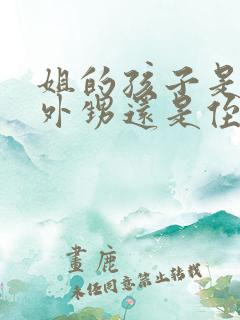 姐的孩子是
外甥還是侄
畫鹿
未經同意禁止轉載